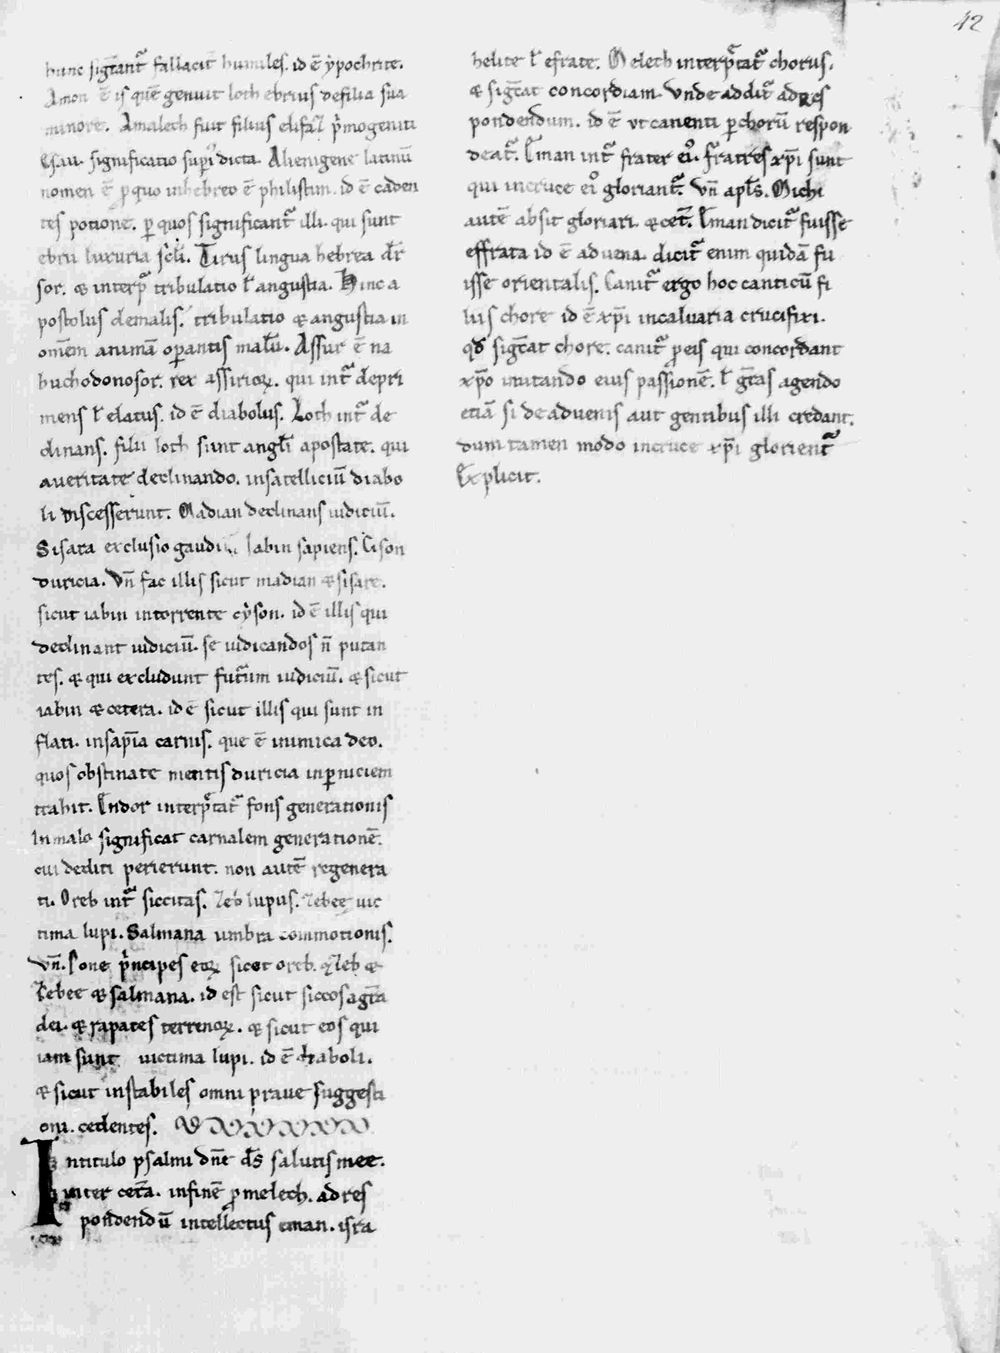 42
hunc sigt̄ant᷑ fallaciť humiles. id ē ẏpochrite.
Amon ē is quē genuit loth ebrius defilia sua
minore. Amalech fuit filius elifaz p̄mogeniti
Esau. significatio sup̄i dicta. Alienigene latinū
nomen ē ꝓ quo inhebreo ē philistim. id ē caden
tes potione. ꝑ quos significant᷑ illi. qui sunt
ebrii luxuria sc̄li. Tirus lingua hebrea dr̄
sor. ⁊ interp̄ tribulatio ł angustia. Hinc a
postolus demalis. tribulatio ⁊ angustia in
om̄em animā oꝑantis malū. Assur ē na
buchodonosor. rex assirioꝝ. qui int᷑ depri
mens ł elatus. id ē diabolus. Loth int᷑ de
clinans. filii loth sunt angl̄i apostate. qui
aueritate declinando. insatelliciū diabo
li discesserunt. Madian declinans iudiciū.
Sisara exclusio gaudii Iabin sapiens. Cison
duricia. Vn̄ fac illis sicut madian ⁊ sisare.
sicut iabin intorrente cẏson. id ē illis qui
declinant iudiciū. se iudicandos n̄ putan
tes. ⁊ qui excludunt fut᷑um iudiciū. ⁊ sicut
iabin ⁊ cetera. id ē sicut illis qui sunt in
flati. insapīa carnis. que ē inimica deo.
quos obstinate mentis duricia inꝑniciem
trahit. Endor interp̄tat᷑ fons generationis
In malo significat carnalem generationē.
cui dediti perierunt. non autē regenera
ti. Oreb int᷑ siccitas. Zeb lupus. Zebee uic
tima lupi. Salmana umbra commotionis.
vn̄. Pone p̄ncipes eoꝝ sicut oreb. ⁊ zeb ⁊
Zebee ⁊ salmana. id est sicut siccos agr̄a
dei. ⁊ rapaces terrenoꝝ. ⁊ sicut eos qui
iam sunt uictima lupi. id ē diaboli.
⁊ sicut instabiles omni praue suggesti
oni. cedentes.
Intitulo psalmi dn̄e ds̄ salutis mee.
inter cet̄a. infinē ꝓmelech. ad res
pondendū intellectus eman. isra
helite ł efrate. Melech interp̄tat᷑ chorus.
⁊ sigt̄at concordiam. Vnde addit᷑ ad res
pondendum. id ē ut canenti ꝑ chorū respon
deat᷑. Eman int᷑ frater ei᷒. Fratres xp̄i sunt
qui incruce ei᷒ gloriant᷑. Vn̄ apl̄s. Michi
autē absit gloriari. ⁊ cet᷑. Eman dicit᷑ fuisse
effrata id ē aduena. dicit᷑ enim quidā fu
isse orientalis. Canit᷑ ergo hoc canticū fi
liis chore id ē xp̄i incaluaria crucifixi.
qd̄ sigt̄at chore. canit᷑ ꝓ eis qui concordant
xp̄o imitando eius passionē. ł gr̄as agendo
etiā si de aduenis aut gentibus illi credant.
dum tamen modo incruce xp̄i glorient᷑
Explicit.